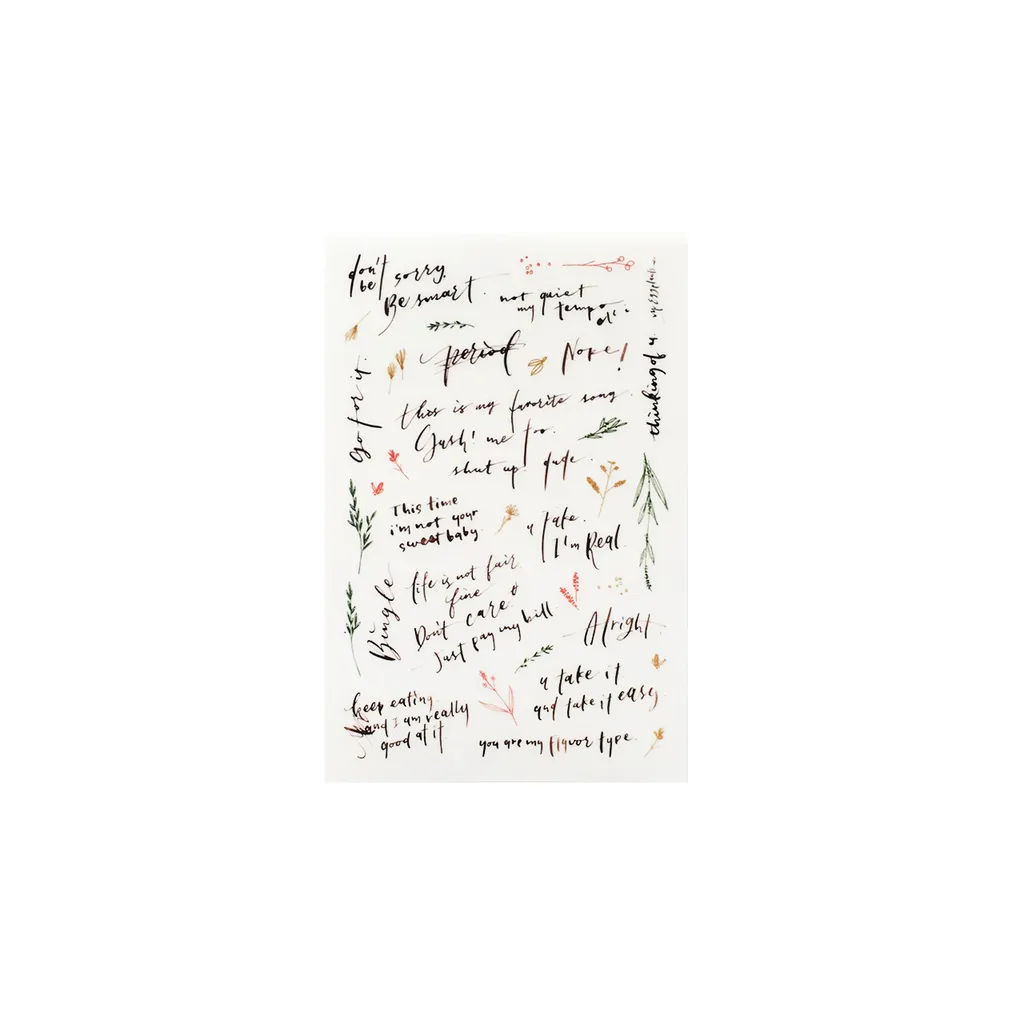 don't
be sorry.
Be smart.
not quiet
my tempo
period
Nope!
go for it.
thinking of u.
this is my favorite song.
Gash! me too.
shut up dude.
This time
i'm not your
sweet baby.
u fake.
I'm Real.
life is not fair.
fine
Don't care
Just pay my bill.
Bingle
Alright.
u take it
and take it easy
keep eating
and I am really
good at it
you are my flavor type.